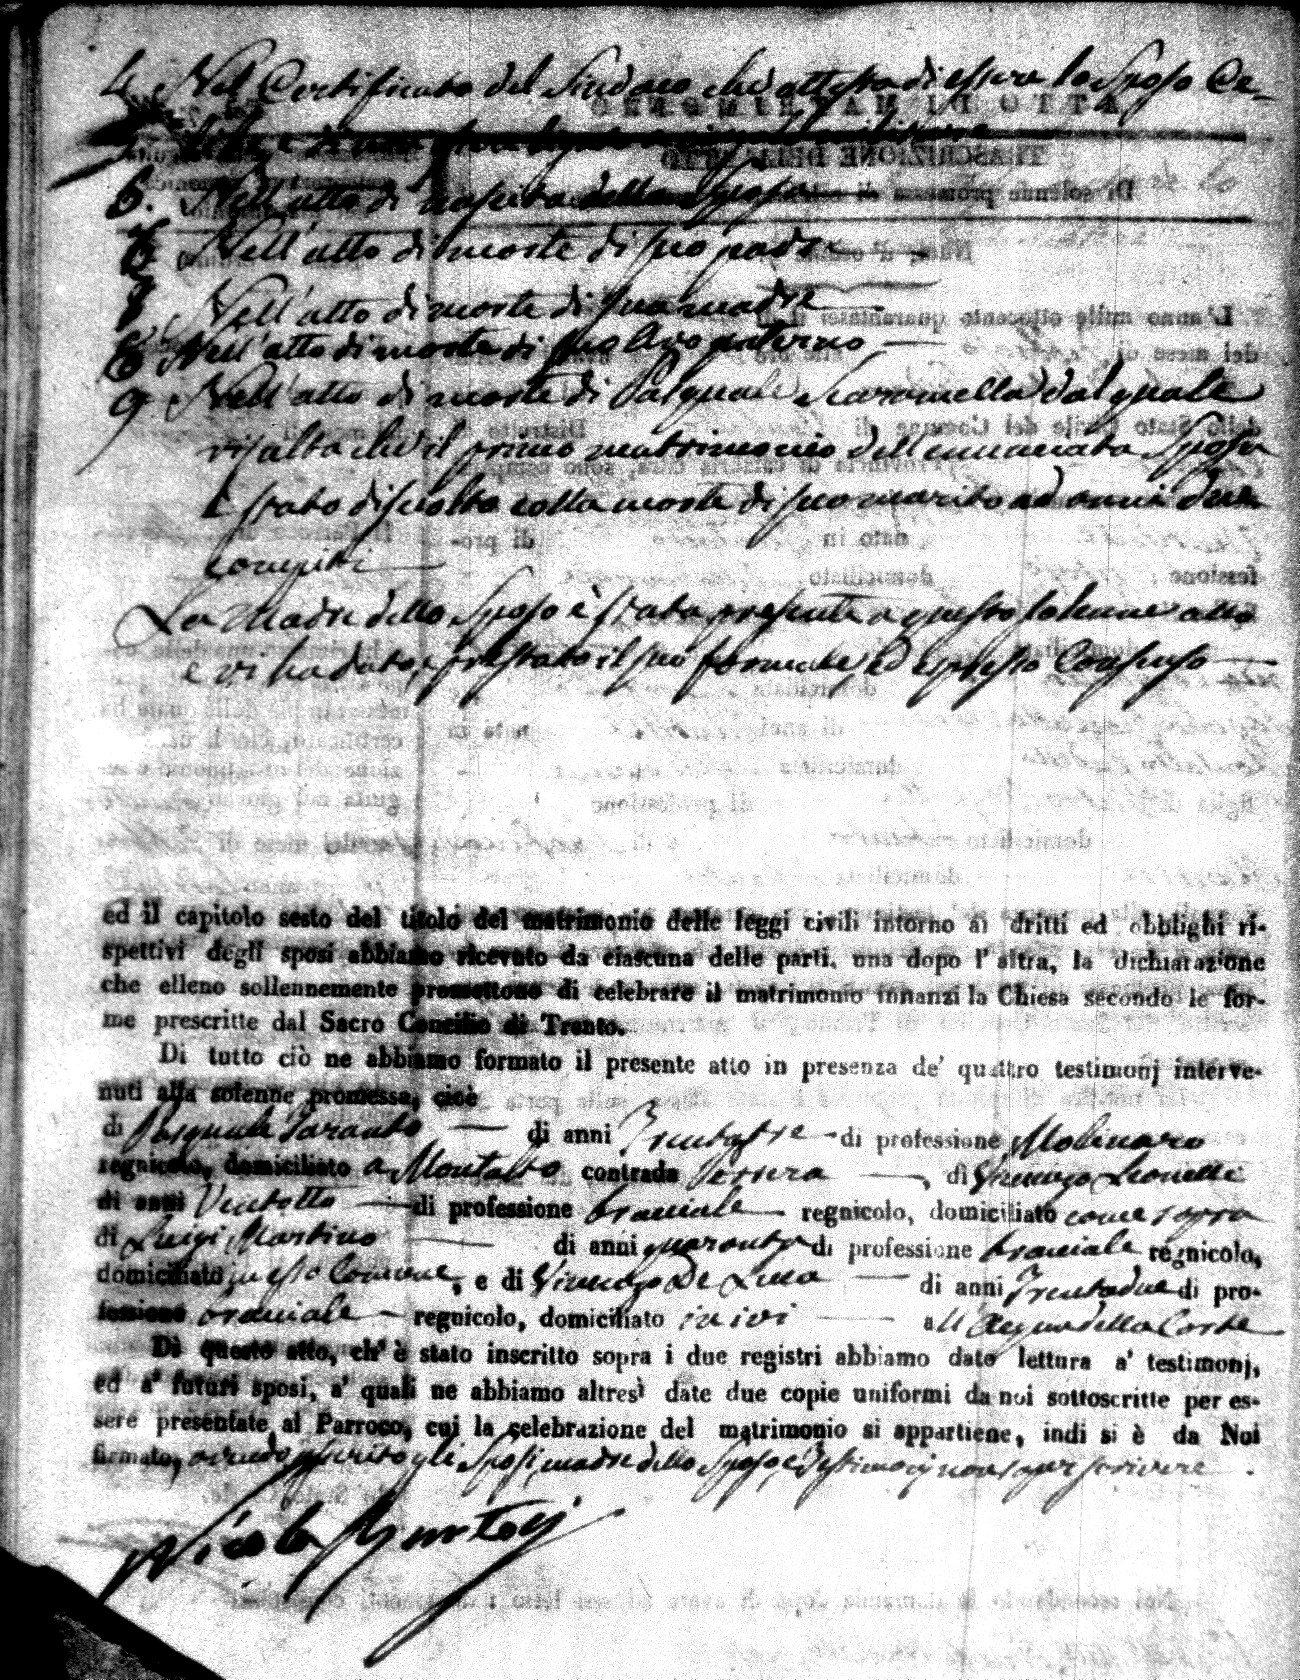 4. Nel Certificato del Sindaco che attesta di essere lo Sposo Ce-
6. Nell'atto di nascita della Sposa
Nell'atto di morte di suo padre
8 Nell'atto di morte di sua madre
Nell'atto di morte di suo Avo paterno
9 Nell'atto di morte di Pasquale Scaramella dal quale
risulta che il primo matrimonio dell'enunciata Sposa
è stato disciolto colla morte di suo marito ad anni due
compiti
La Madre dello Sposo è stata presente a questo solenne atto
e vi ha dato, e prestato il suo formale, ed espresso Consenso
ed il capitolo sesto del titolo del matrimonio delle leggi civili intorno ai dritti ed obblighi ri-
spettivi degli sposi abbiamo ricevuto da ciascuna delle parti, una dopo l'altra, la dichiarazione
che elleno sollennemente promettono di celebrare il matrimonio innanzi la Chiesa secondo le for-
me prescritte dal Sacro Concilio di Trento.
Di tutto ciò ne abbiamo formato il presente atto in presenza de' quattro testimonj interve-
nuti alla solenne promessa, cioè
di Pasquale Taranto di anni Trentatre di professione Molinaro
regnicolo, domiciliato a Montalto contrada , di Vincenzo Leonetti
di anni Ventotto di professione bracciale regnicolo, domiciliato come sopra
di Luigi Martino di anni quaranta di professione bracciale regnicolo,
domiciliato in esso Comune, e di Vincenzo De Luca di anni Trentadue di pro-
fessione bracciale regnicolo, domiciliato in ivi all'Acqua della Corte
Di questo atto, ch'è stato inscritto sopra i due registri abbiamo dato lettura a' testimonj,
ed a' futuri sposi, a' quali ne abbiamo altresì date due copie uniformi da noi sottoscritte per es-
sere presentate al Parroco, cui la celebrazione del matrimonio si appartiene, indi si è da Noi
firmato, avendo asserito gli Sposi, madre dello Sposo, e Testimonj non saper scrivere .
Nicola